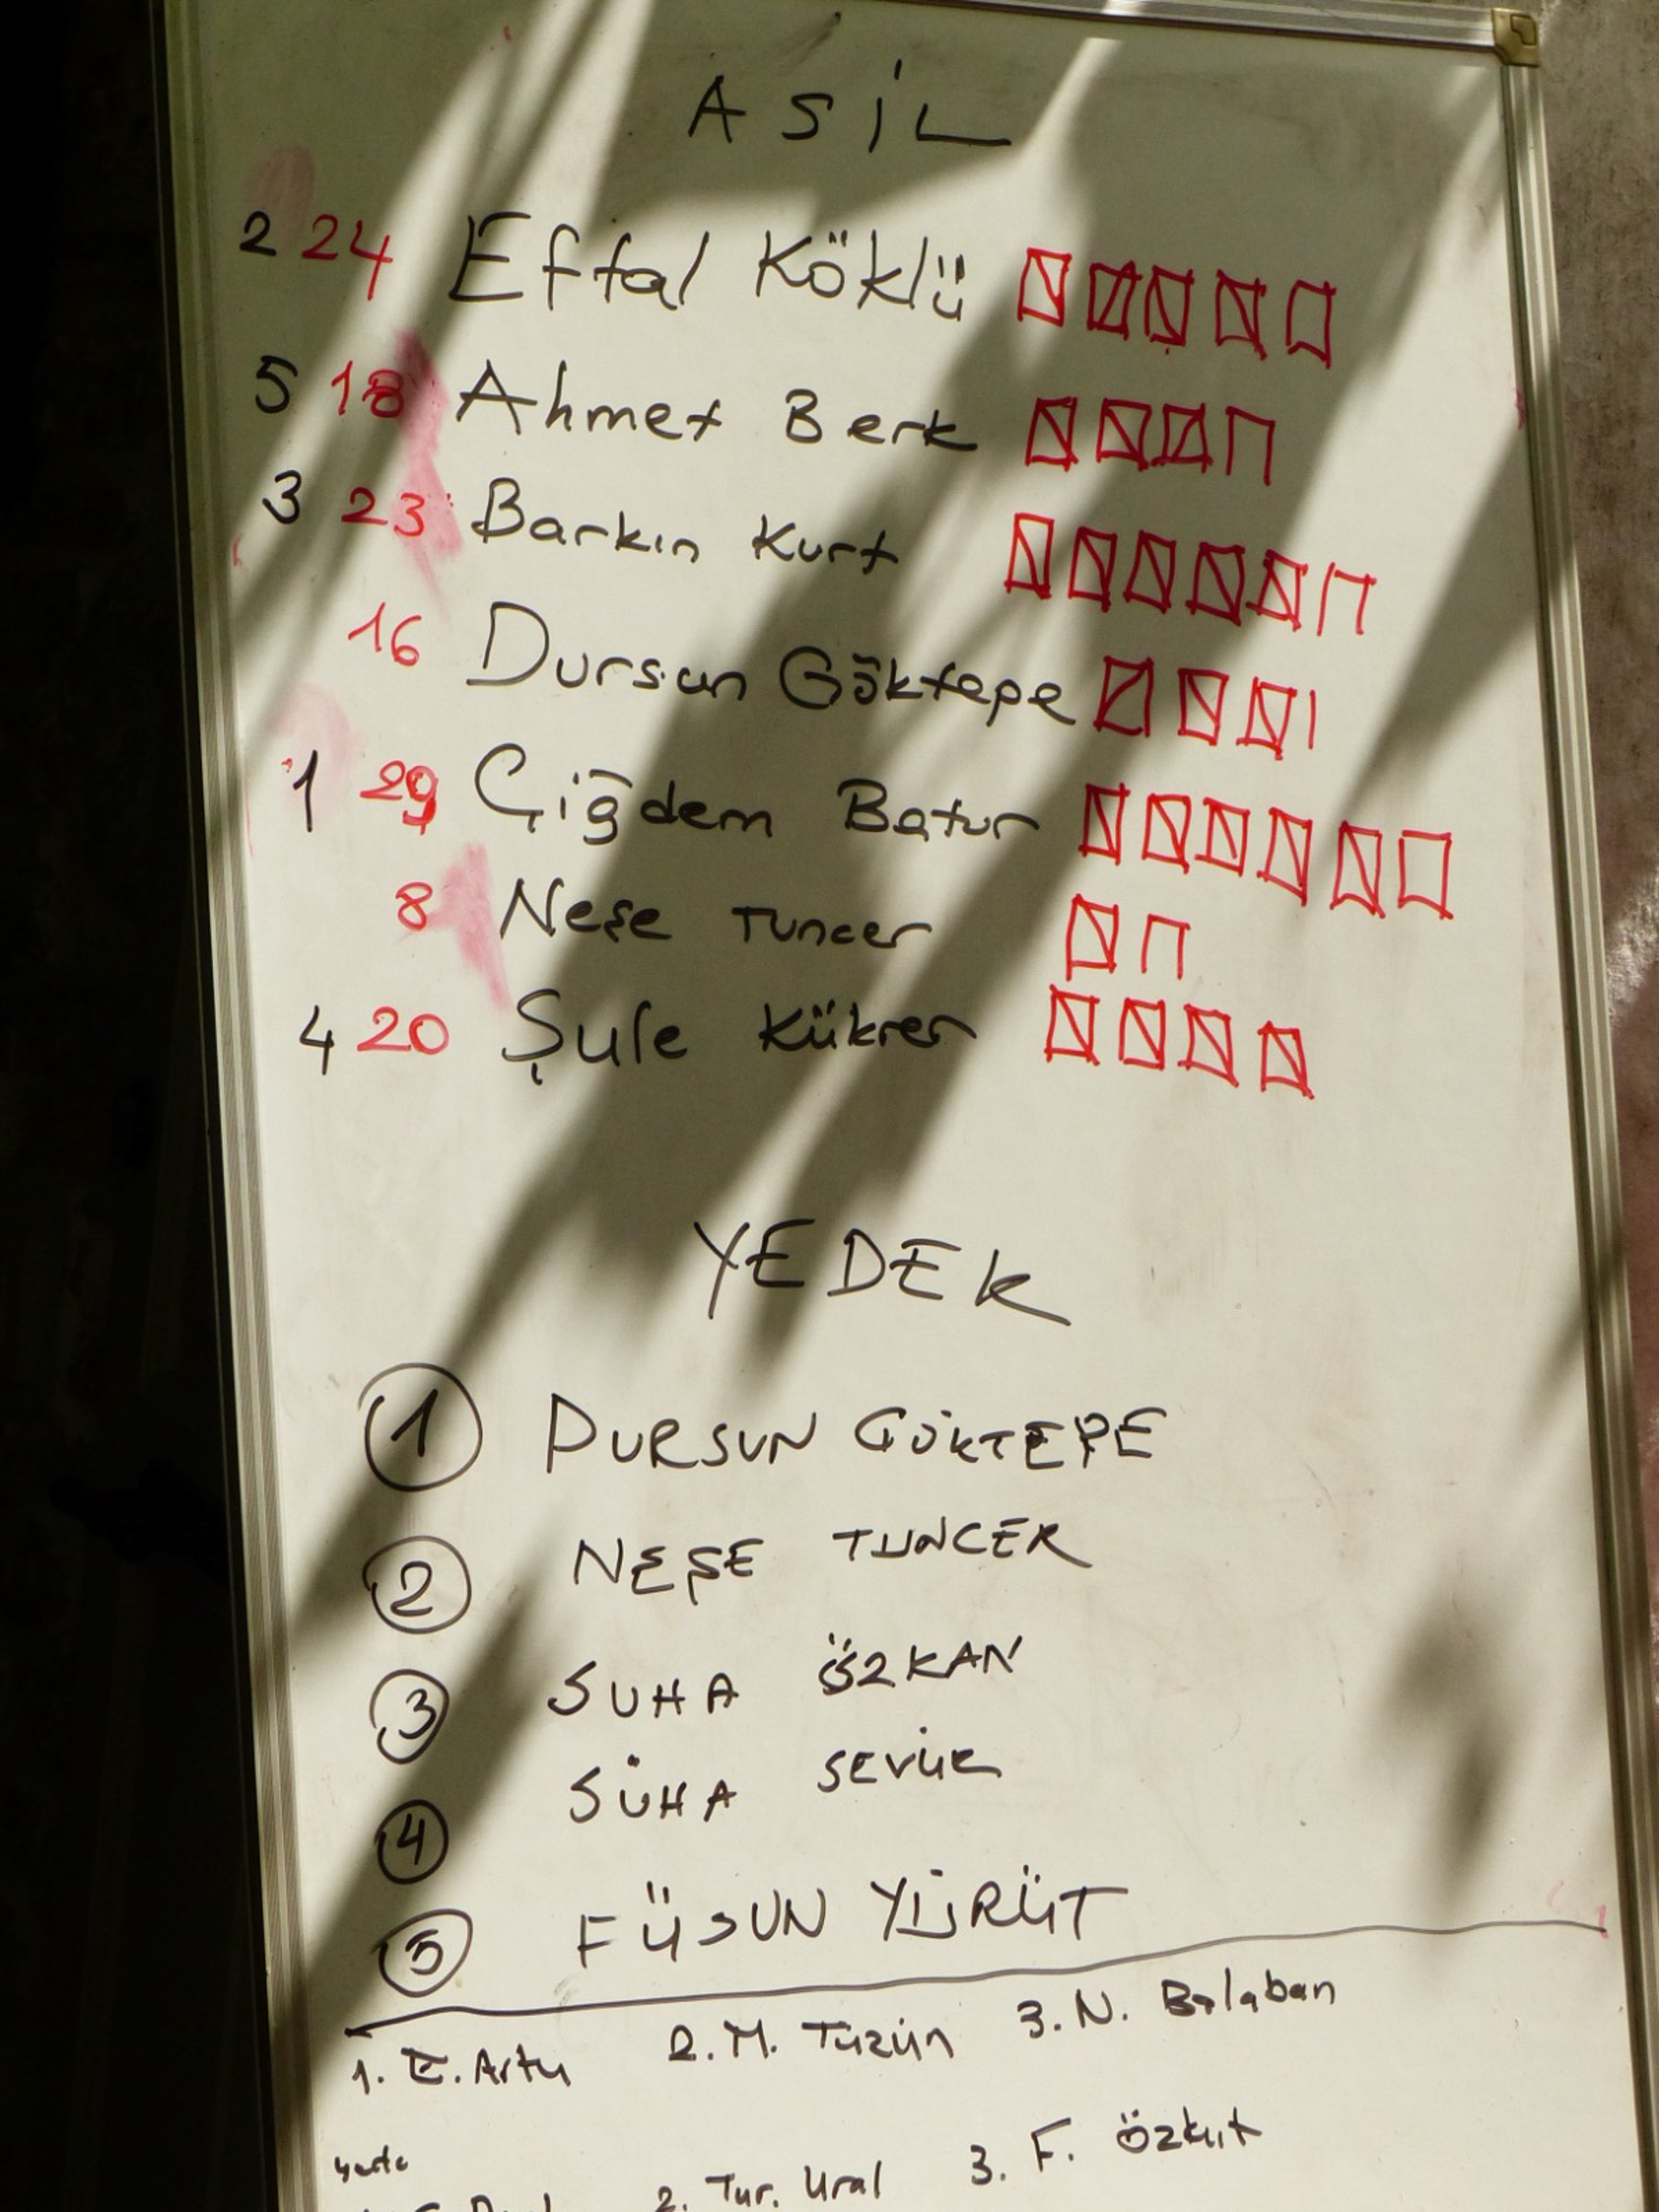 ASİL
2 24 Eftal Köklü
5 18 Ahmet Berk
3 23 Barkın Kurt
16 Dursun Göktepe
1 29 Çiğdem Batur
8 Neşe Tuncer
4 20 Şule Kükrer
YEDEK
1 DURSUN GÖKTEPE
2 NEŞE TUNCER
3 SUHA ÖZKAN
4 SÜHA SEVÜK
5 FÜSUN YÜRÜT
1. E. Artu 2. M. Tüzün 3. N. Balaban
2. Tur. Ural 3. F. Özkut